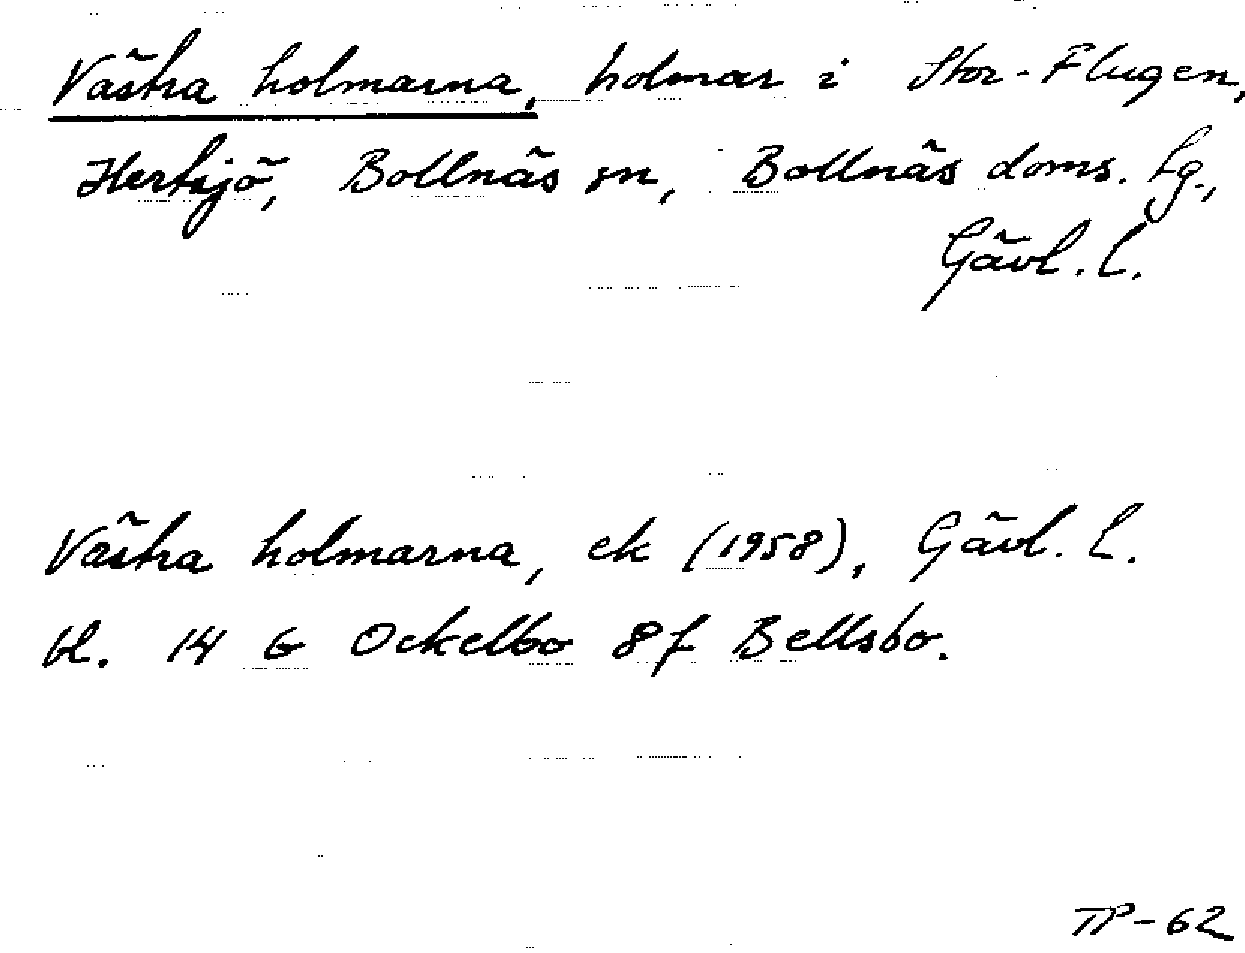 Västra holmarna, holmar i Stor-Flugen,
Hertsjö, Bollnäs sn, Bollnäs doms. lg.,
Gävl. l.
Västra holmarna, ek (1958), Gävl. l.
bl. 14 G Ockelbo 8f Bellsbo.
TP-62